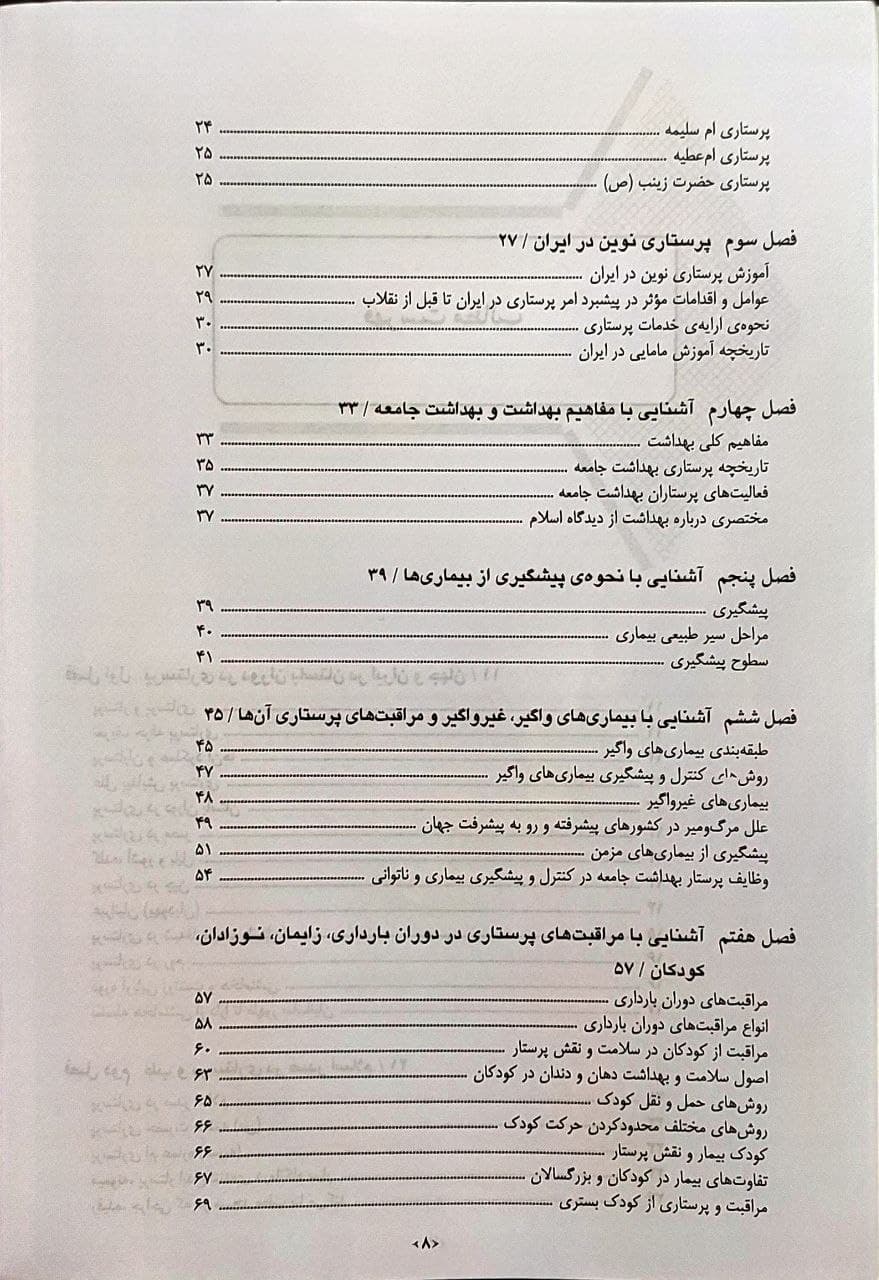 پرستاری ام سلیمه ........ ۲۴
پرستاری ام‌عطیه ........ ۲۵
پرستاری حضرت زینب (ص) ........ ۲۵
فصل سوم پرستاری نوین در ایران / ۲۷
آموزش پرستاری نوین در ایران ........ ۲۷
عوامل و اقدامات مؤثر در پیشبرد امر پرستاری در ایران تا قبل از نقلاب ........ ۲۹
نحوه‌ی ارایه‌ی خدمات پرستاری ........ ۳۰
تاریخچه آموزش مامایی در ایران ........ ۳۰
فصل چهارم آشنایی با مفاهیم بهداشت و بهداشت جامعه / ۳۳
مفاهیم کلی بهداشت ........ ۳۳
تاریخچه پرستاری بهداشت جامعه ........ ۳۵
فعالیت‌های پرستاران بهداشت جامعه ........ ۳۷
مختصری درباره بهداشت از دیدگاه اسلام ........ ۳۷
فصل پنجم آشنایی با نحوه‌ی پیشگیری از بیماری‌ها / ۳۹
پیشگیری ........ ۳۹
مراحل سیر طبیعی بیماری ........ ۴۰
سطوح پیشگیری ........ ۴۱
فصل ششم آشنایی با بیماری‌های واگیر، غیرواگیر و مراقبت‌های پرستاری آن‌ها / ۴۵
طبقه‌بندی بیماری‌های واگیر ........ ۴۵
روش‌های کنترل و پیشگیری بیماری‌های واگیر ........ ۴۷
بیماری‌های غیرواگیر ........ ۴۸
علل مرگ‌ومیر در کشورهای پیشرفته و رو به پیشرفت جهان ........ ۴۹
پیشگیری از بیماری‌های مزمن ........ ۵۱
وظایف پرستار بهداشت جامعه در کنترل و پیشگیری بیماری و ناتوانی ........ ۵۴
فصل هفتم آشنایی با مراقبت‌های پرستاری در دوران بارداری، زایمان، نوزادان،
کودکان / ۵۷
مراقبت‌های دوران بارداری ........ ۵۷
انواع مراقبت‌های دوران بارداری ........ ۵۸
مراقبت از کودکان در سلامت و نقش پرستار ........ ۶۰
اصول سلامت و بهداشت دهان و دندان در کودکان ........ ۶۳
روش‌های حمل و نقل کودک ........ ۶۵
روش‌های مختلف محدودکردن حرکت کودک ........ ۶۶
کودک بیمار و نقش پرستار ........ ۶۶
تفاوت‌های بیمار در کودکان و بزرگسالان ........ ۶۷
مراقبت و پرستاری از کودک بستری ........ ۶۹
‹۸›